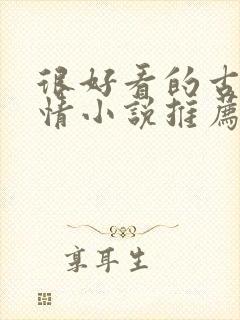 很好看的古
情小説推薦
享耳生